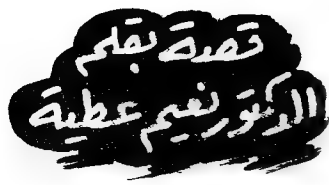 قصة بقلم
الدكتور نعيم عطية